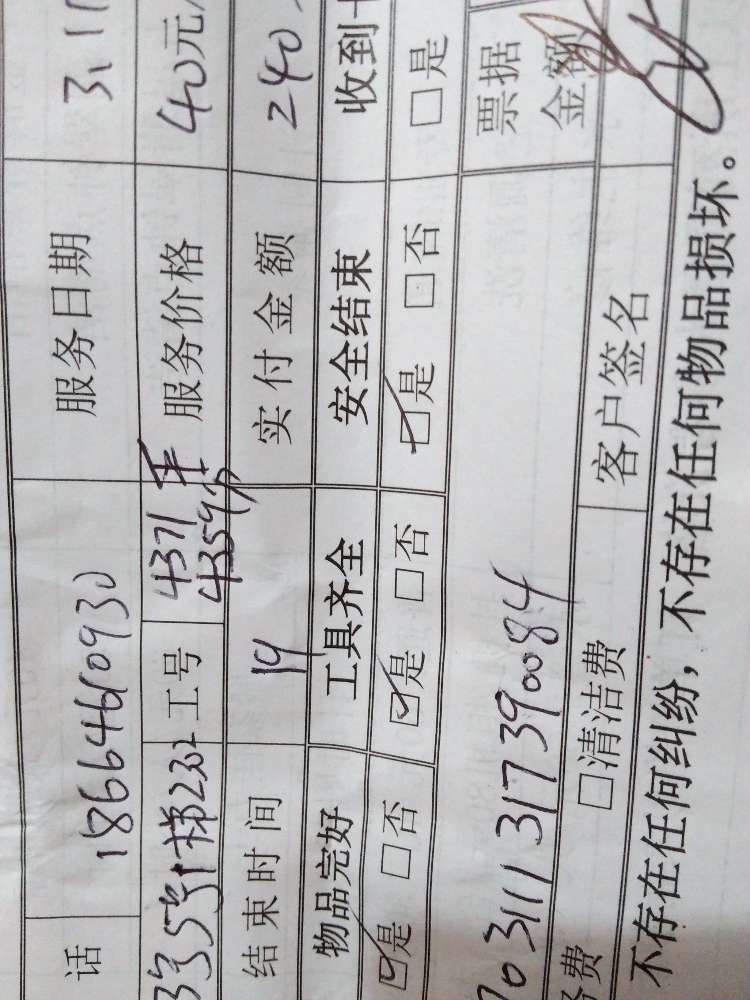 话 18664610930 服务日期 3.11
号5号1梯2302 工号 4371 4359 服务价格 40元
结束时间 19 实付金额 240
物品完好 工具齐全 安全结束 收到
☑是 □否 ☑是 □否 ☑是 □否 □是
703111317390084 票据金额
费 □清洁费 客户签名
不存在任何纠纷，不存在任何物品损坏。